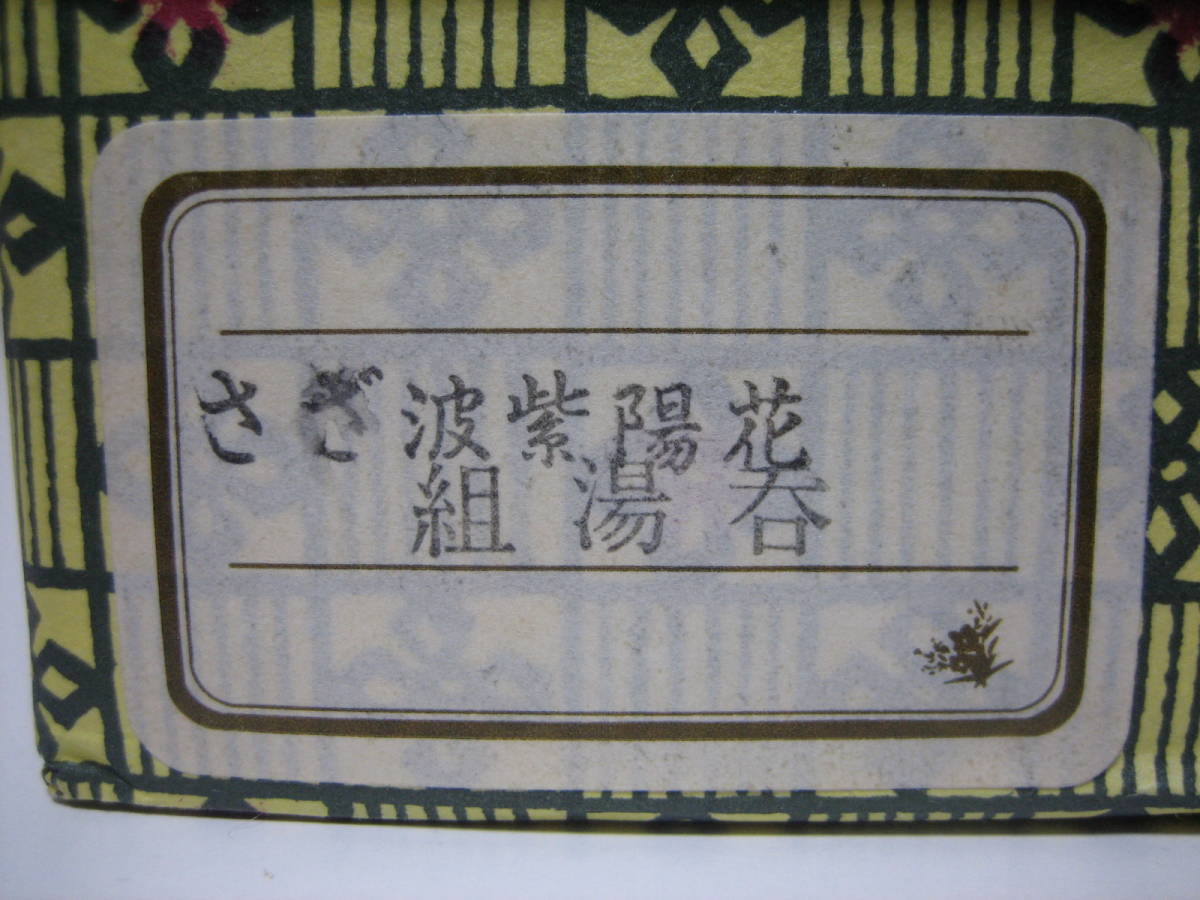 さざ波紫陽花
組湯呑